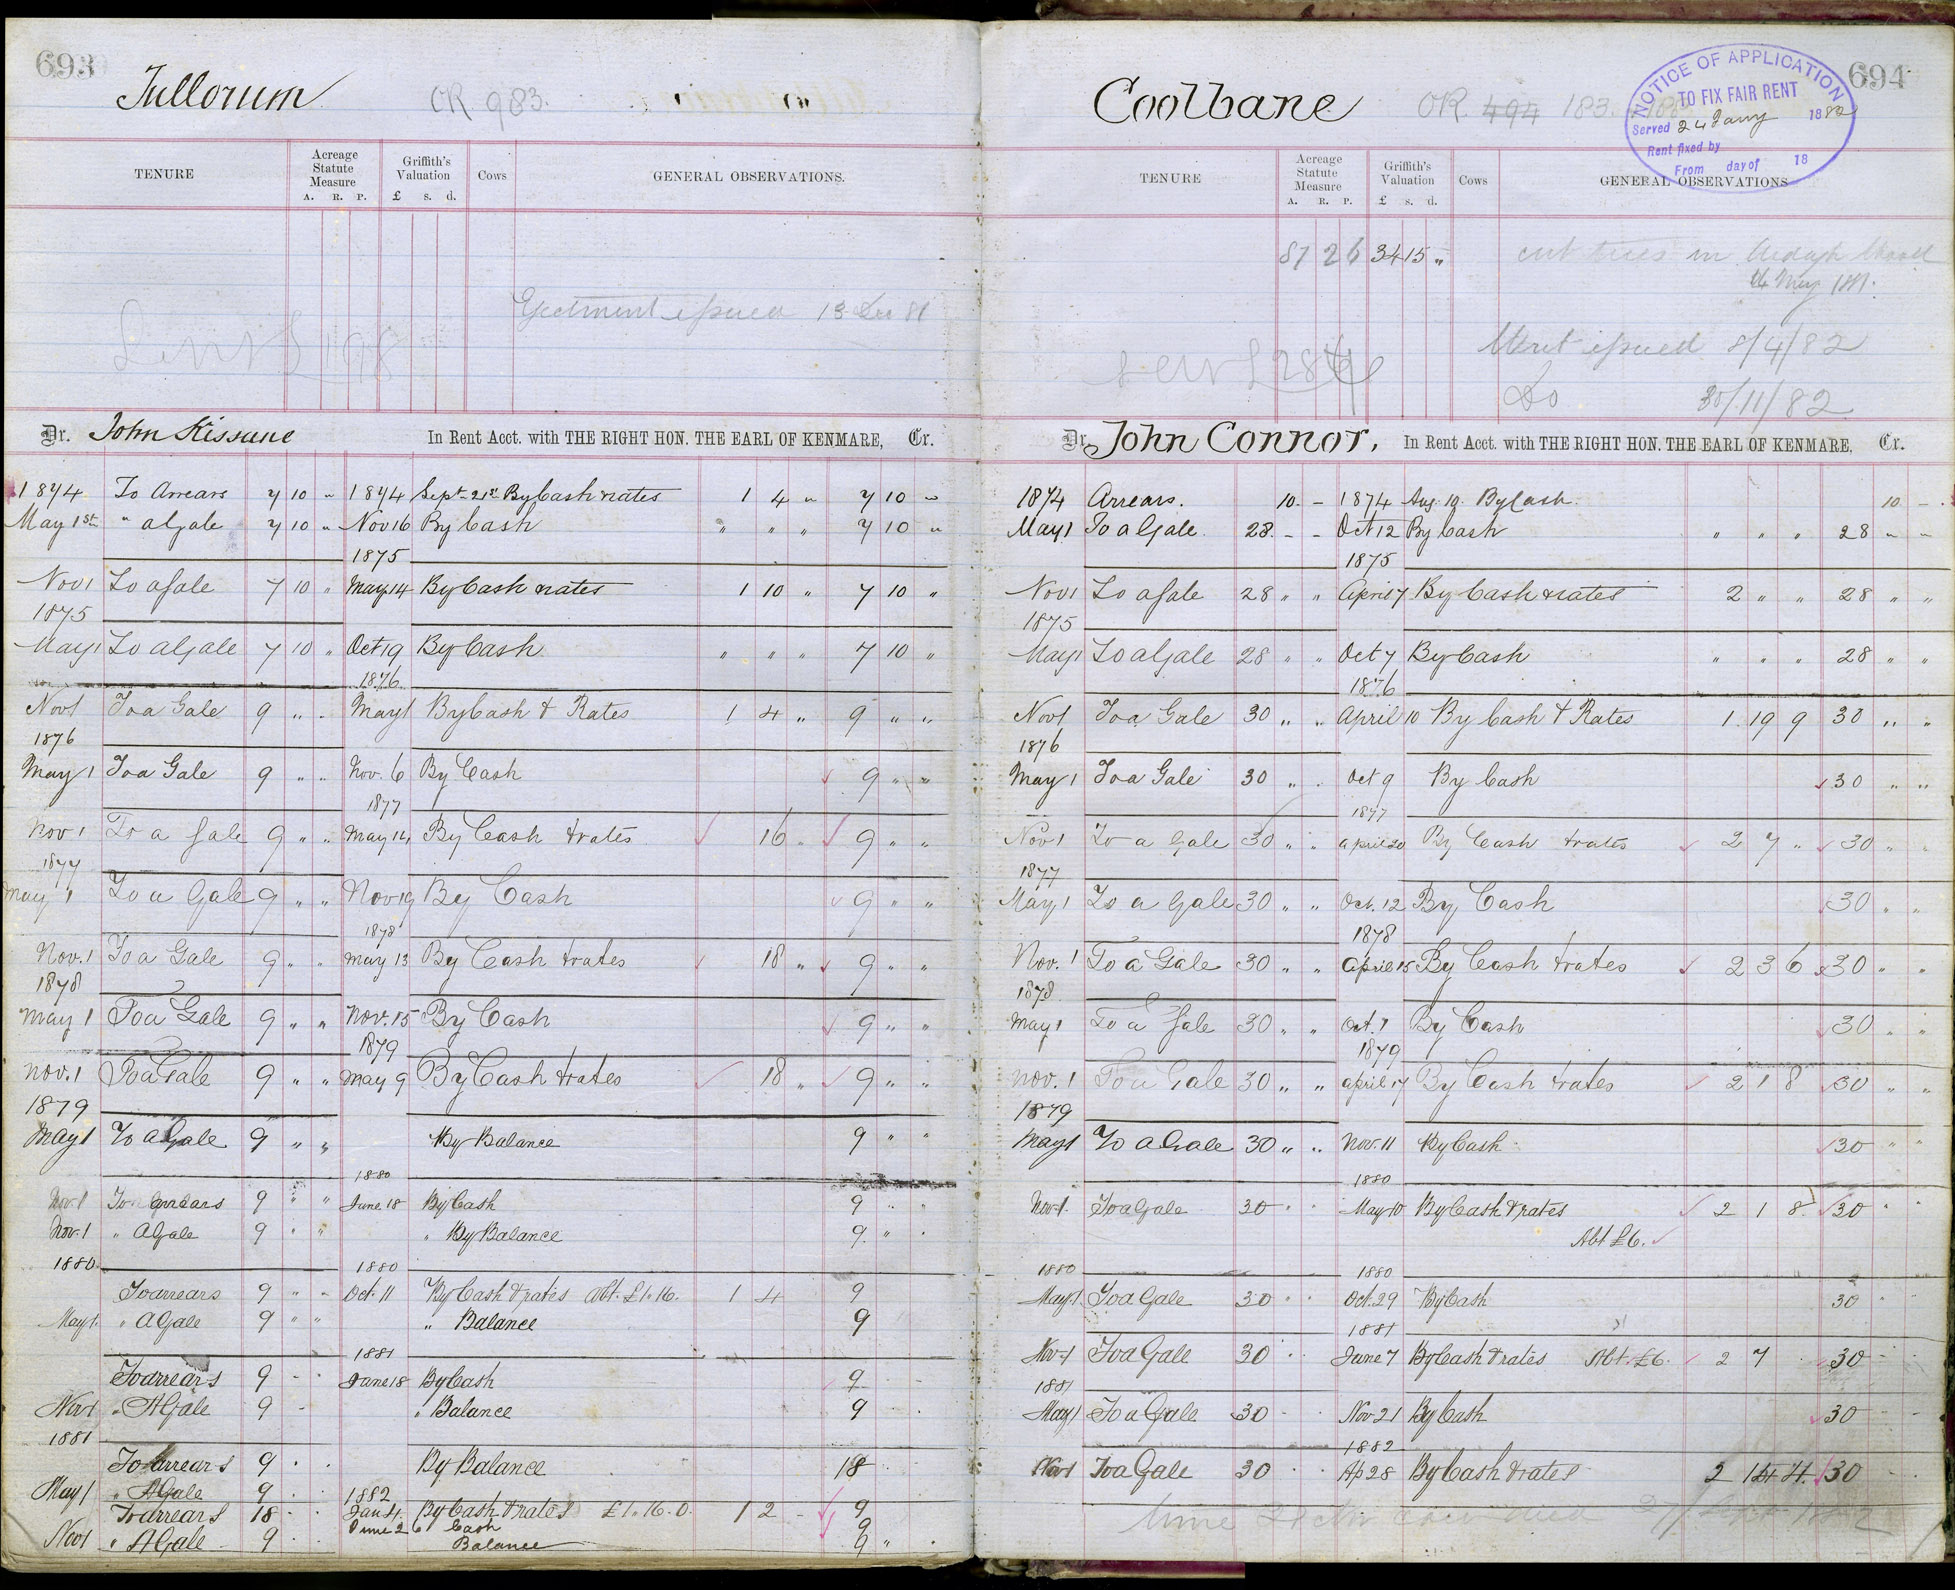 693
Tullorum
OR 983.
TENURE
Acreage Statute Measure
A. R. P.
Griffith's Valuation
£ s. d.
Cows
GENERAL OBSERVATIONS.
Ejectment issued 13 Dec 81
Dr. John Kissane In Rent Acct. with THE RIGHT HON. THE EARL OF KENMARE, Cr.
1874 To Arrears 7 10 " 1874 Sept 21st By Cash & rates 1 4 " 7 10 "
May 1st " a Gale 7 10 " Nov 16 By Cash " " " 7 10 "
1875
Nov 1 To a Gale 7 10 " May 14 By Cash & rates 1 10 " 7 10 "
1875
May 1 To a Gale 7 10 " Oct 19 By Cash " " " 7 10 "
1876
Nov 1 To a Gale 9 " " May 1 By Cash & Rates 1 4 " 9 " "
1876
May 1 To a Gale 9 " " Nov. 6 By Cash 9 " "
1877
Nov 1 To a Gale 9 " " May 14 By Cash & rates 16 " 9 " "
1877
May 1 To a Gale 9 " " Nov 19 By Cash 9 " "
1878
Nov. 1 To a Gale 9 " " May 13 By Cash & rates 18 " 9 " "
1878
May 1 To a Gale 9 " " Nov. 15 By Cash 9 " "
1879
Nov. 1 To a Gale 9 " " May 9 By Cash & rates 18 " 9 " "
1879
May 1 To a Gale 9 " " By Balance 9 " "
1880
Nov. 1 To arrears 9 " " June 18 By Cash 9 " "
Nov. 1 " A Gale 9 " " " By Balance 9 " "
1880 1880
To arrears 9 " " Oct. 11 By Cash & rates Abt. £1.16. 1 4 9
May 1 " A Gale 9 " " " Balance 9
1881
To arrears 9 - - June 18 By Cash 9 - -
Nov 1 " A Gale 9 - " Balance 9
1881
To arrears 9 . . By Balance 18
May 1 " A Gale 9 . 1882
To arrears 18 . . Jan 4. By Cash & rates £1.16.0. 1 2 - 9
June 26 Cash 9
Nov 1 " A Gale 9 Balance 9 "
694
Coolbane
OR. 494 183.
NOTICE OF APPLICATION
TO FIX FAIR RENT
Served 24 Jany 1882
Rent fixed by
From day of 18
TENURE
Acreage Statute Measure
A. R. P.
Griffith's Valuation
£ s. d.
Cows
GENERAL OBSERVATIONS
87 2 6 34 15 " cut trees in Ardagh Wood
24 May 1881.
Writ issued 8/4/82
Do 30/11/82
Dr. John Connor. In Rent Acct. with THE RIGHT HON. THE EARL OF KENMARE, Cr.
1874 Arrears. 10. - 1874 Aug. 10 By Cash. 10 -
May 1 To a Gale 28 - - Oct 12 By Cash " " " 28 " "
1875
Nov 1 To a Gale 28 " " April 7 By Cash & rates 2 " " 28 " "
1875
May 1 To a Gale 28 " " Oct 7 By Cash " " " 28 " "
1876
Nov 1 To a Gale 30 " " April 10 By Cash & Rates 1. 19 9 30 " "
1876
May 1 To a Gale 30 " " Oct 9 By Cash 30 " "
1877
Nov 1 To a Gale 30 " " April 20 By Cash & rates 2 7 " 30 " "
1877
May 1 To a Gale 30 " " Oct. 12 By Cash 30 " "
1878
Nov. 1 To a Gale 30 " " April 15 By Cash & rates 2 3 6 30 " "
1878
May 1 To a Gale 30 " " Oct. 7 By Cash 30 " "
1879
Nov. 1 To a Gale 30 " " April 17 By Cash & rates 2 1 8 30 " "
1879
May 1 To a Gale 30 " " Nov. 11 By Cash 30 " "
1880
Nov 1. To a Gale 30 " " May 10 By Cash & rates 2 1 8 30 "
Abt £6.
1880 1880
May 1. To a Gale 30 " " Oct. 29 By Cash 30 "
1881
Nov 1 To a Gale 30 " June 7 By Cash & rates Abt. £6. 2 7 30 -
1881
May 1 To a Gale 30 - Nov 21 By Cash 30 - -
1882
Nov 1 To a Gale 30 " Ap 28 By Cash & rates 2 14 4. 30